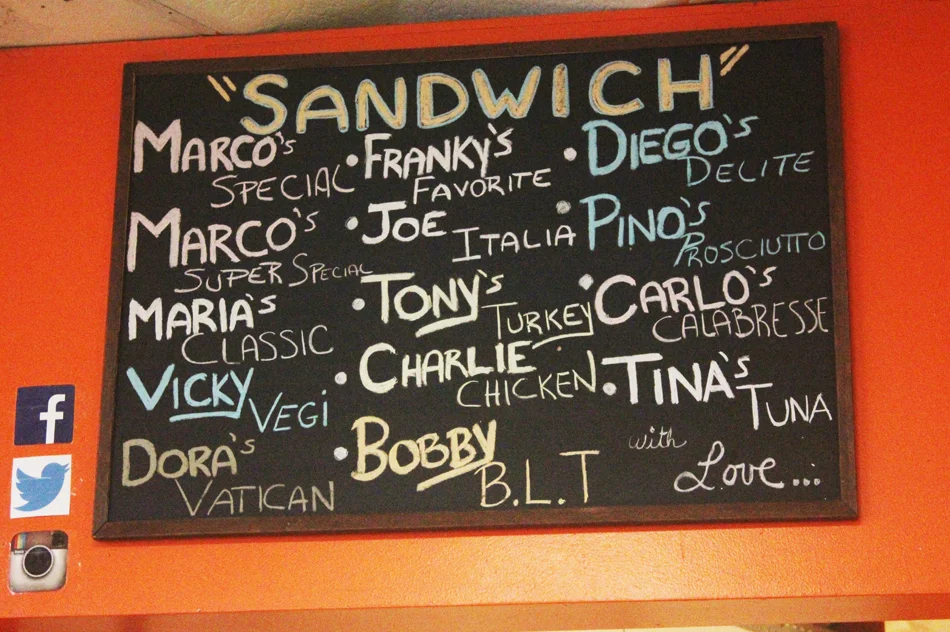 "SANDWICH"
MARCO'S
SPECIAL
MARCO'S
SUPER SPECIAL
MARIA'S
CLASSIC
VICKY
VEGI
DORA'S
VATICAN
• FRANKY'S
FAVORITE
• JOE
ITALIA
• TONY'S
TURKEY
• CHARLIE
CHICKEN
• BOBBY
B.L.T
• DIEGO'S
DELITE
• PINO'S
PROSCIUTTO
• CARLO'S
CALABRESSE
• TINA'S
TUNA
with
Love...
f